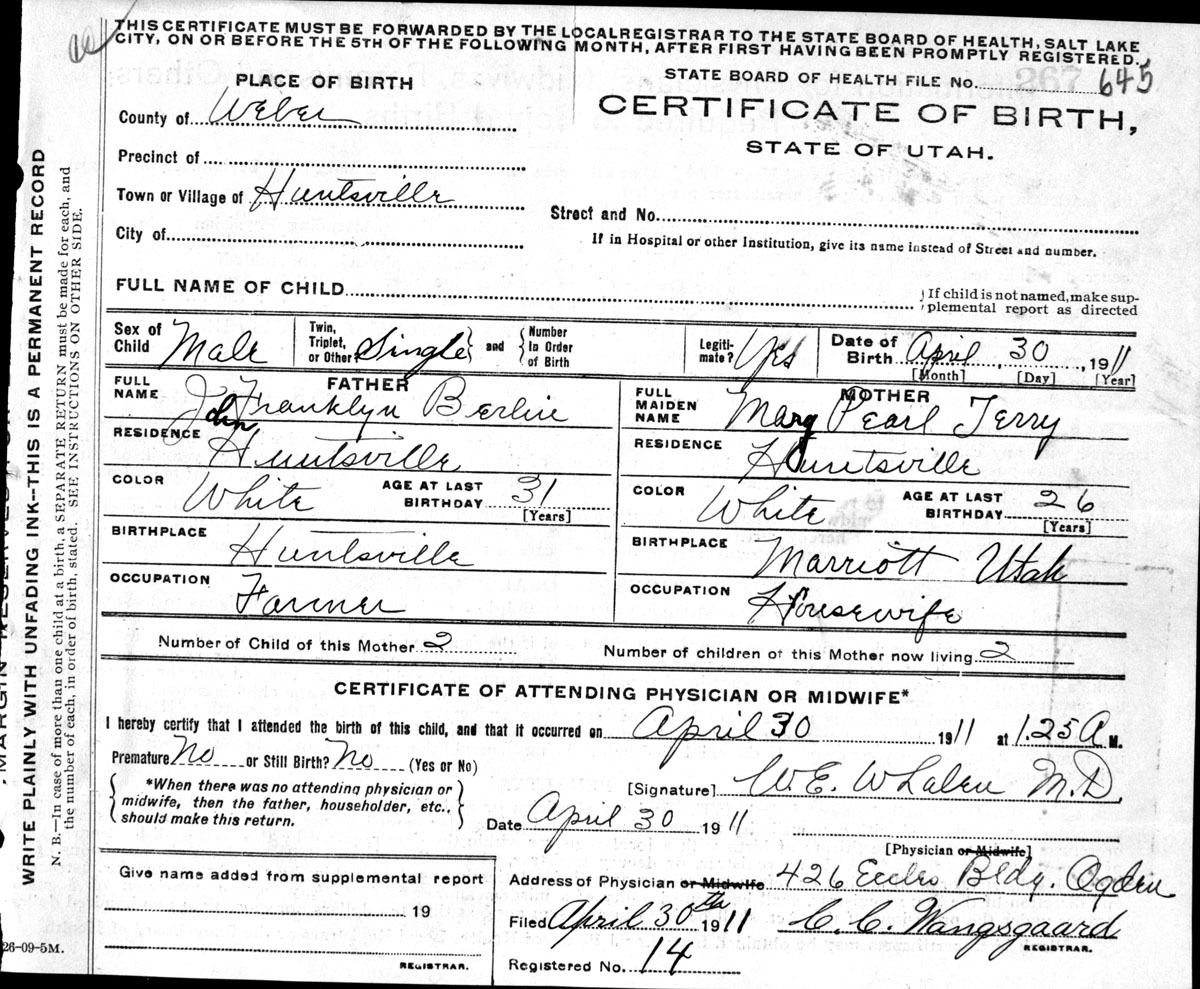 THIS CERTIFICATE MUST BE FORWARDED BY THE LOCAL REGISTRAR TO THE STATE BOARD OF HEALTH, SALT LAKE
CITY, ON OR BEFORE THE 5TH OF THE FOLLOWING MONTH, AFTER FIRST HAVING BEEN PROMPTLY REGISTERED.
PLACE OF BIRTH
STATE BOARD OF HEALTH FILE No. 645
County of Weber
CERTIFICATE OF BIRTH,
STATE OF UTAH.
Precinct of
Town or Village of Huntsville
Street and No.
City of
If in Hospital or other Institution, give its name instead of Street and number.
FULL NAME OF CHILD
If child is not named, make sup-
plemental report as directed
Sex of Child Male Twin, Triplet, or Other? Single and Number In Order of Birth Legiti-mate? Yes Date of Birth April 30, 1911
[Month] [Day] [Year]
FATHER
FULL NAME John Franklyn Berlin
MOTHER
FULL MAIDEN NAME Mary Pearl Terry
RESIDENCE Huntsville
RESIDENCE Huntsville
COLOR White AGE AT LAST BIRTHDAY 31 [Years]
COLOR White AGE AT LAST BIRTHDAY 26 [Years]
BIRTHPLACE Huntsville
BIRTHPLACE Marriott Utah
OCCUPATION Farmer
OCCUPATION Housewife
Number of Child of this Mother 2 Number of children of this Mother now living 2
CERTIFICATE OF ATTENDING PHYSICIAN OR MIDWIFE*
I hereby certify that I attended the birth of this child, and that it occurred on April 30 1911 at 1.25 A M.
Premature No or Still Birth? No (Yes or No)
*When there was no attending physician or
midwife, then the father, householder, etc.,
should make this return.
[Signature] W. E. Whalen M.D.
Date April 30 1911
[Physician or Midwife]
Give name added from supplemental report
19
REGISTRAR.
Address of Physician or Midwife 426 Eccles Bldg. Ogden
Filed April 30th 1911 C. C. Wangsgaard
REGISTRAR.
Registered No. 14
26-09-5M.
WRITE PLAINLY WITH UNFADING INK--THIS IS A PERMANENT RECORD
N. B.—In case of more than one child at a birth, a SEPARATE RETURN must be made for each, and
the number of each, in order of birth, stated. SEE INSTRUCTIONS ON OTHER SIDE.